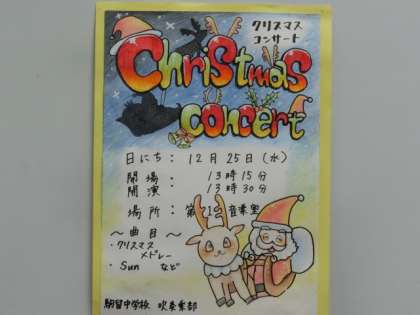 クリスマス
コンサート
Christmas
concert
日にち： 12月25日（水）
開場： 13時15分
開演 13時30分
場所： 第 音楽室
～曲目～
・クリスマス
メドレー
・Sun など
駒留中学校 吹奏楽部